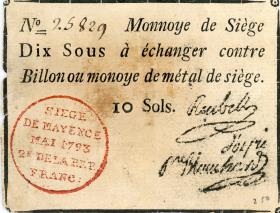 No. 25829 Monnoye de Siège
Dix Sous à échanger contre
Billon ou monoye de métal de siège.
10 Sols. Reubell
SIEGE
DE MAYENCE
MAI 1793
2e DE LA REP.
FRANC: